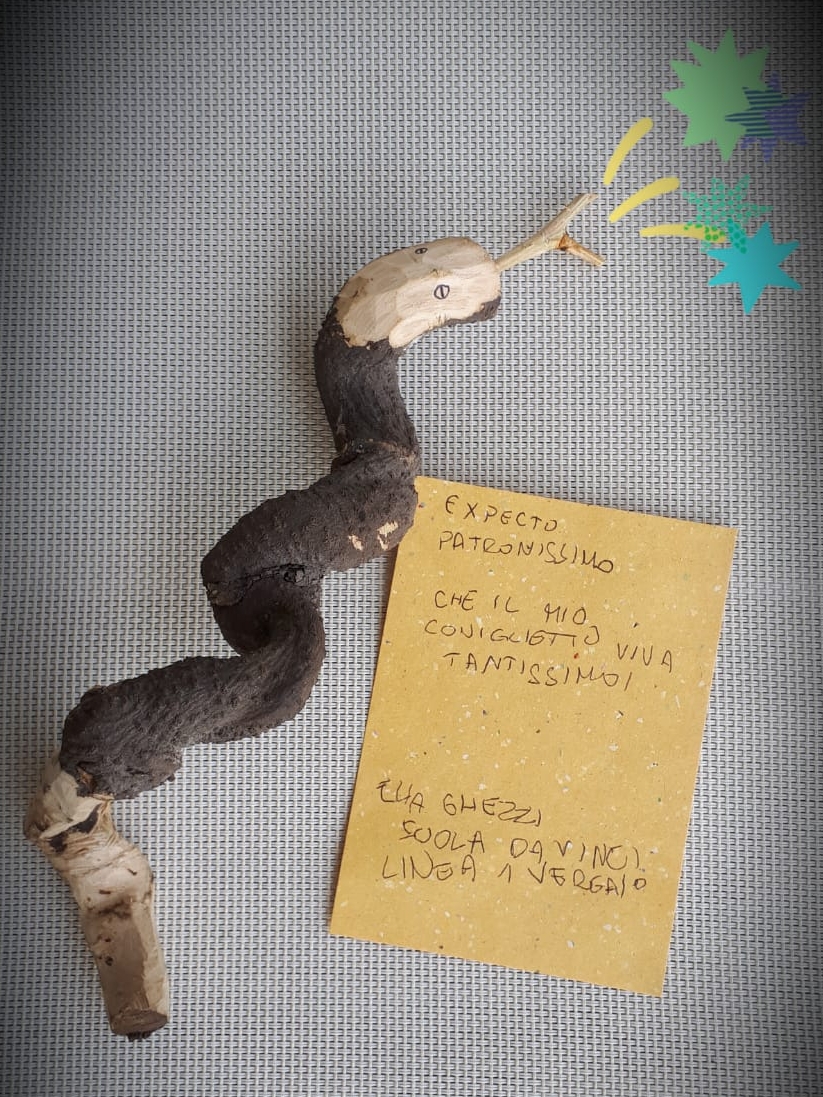 EXPECTO
PATRONISSIMO
CHE IL MIO
CONIGLIETTO VIVA
TANTISSIMO!
GHEZZI
SCUOLA DA VINCI
LINEA 1 VERGAIO